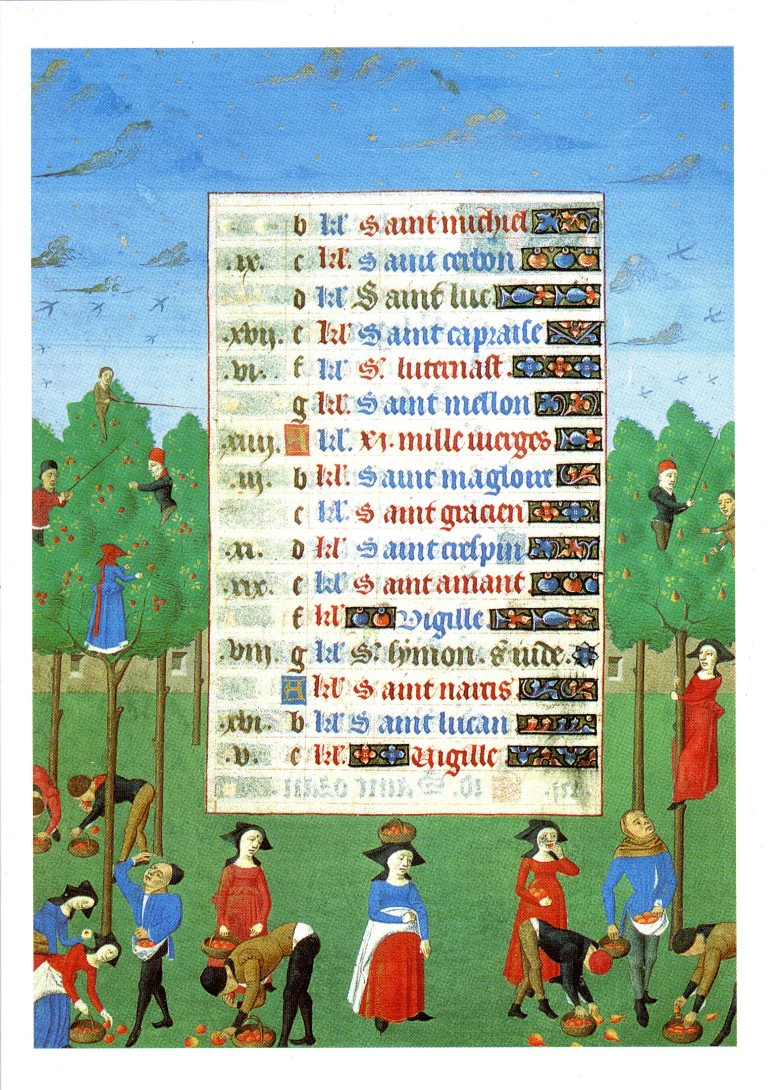 b kl' Saint michiel
.ix. c kl'. Saint cerbon
d kl' Saint luc
.xvij. e kl' Saint capraise
.vi. f kl' S.
g kl'. Saint mellon
.xiiij. A kl'. xj. mille vierges
.iij. b kl'. Saint magloire
c kl'. Saint gracien
.xi. d kl' Saint crespin
.xix. e kl' Saint amant
f kl' Vigille
.viij. g kl' S' symon. s' iude.
A kl' Saint narcis
.xvi. b kl' Saint lucan
.v. c kl'. Vigille